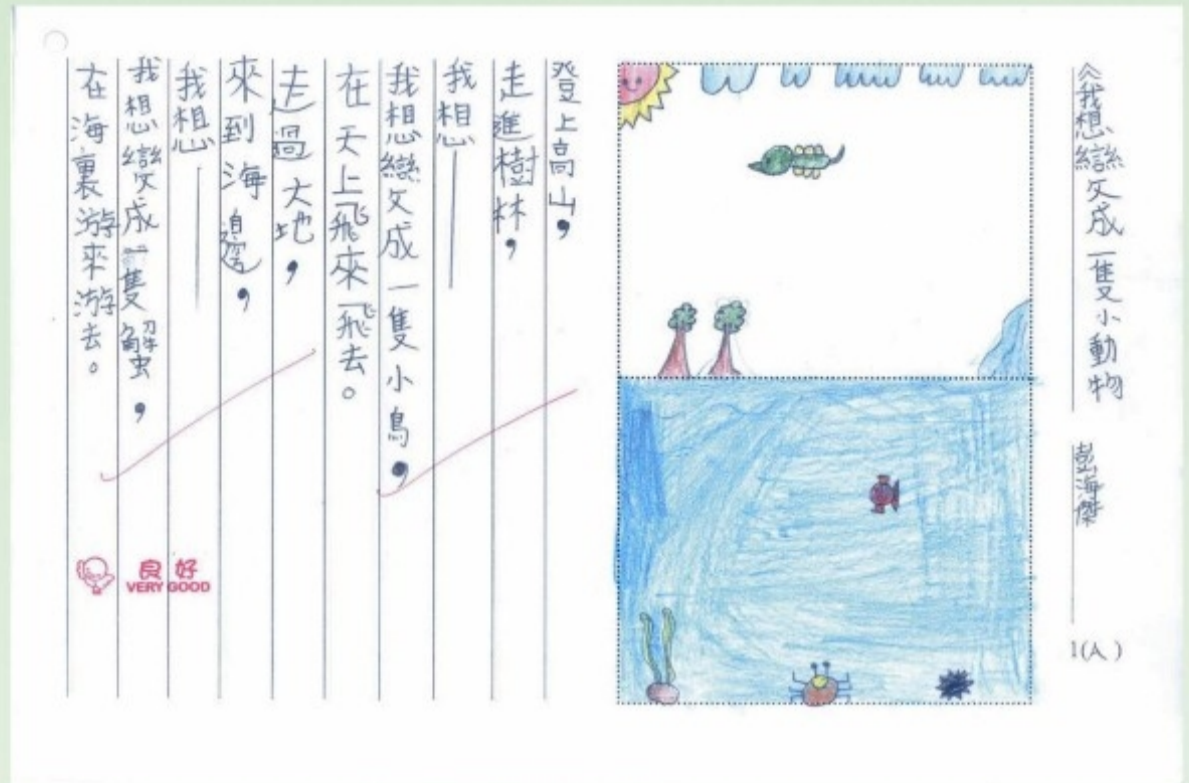 《我想變成一隻小動物
彭海傑
1(人)
登上高山，
走進樹林，
我想——
我想變成一隻小鳥，
在天上飛來飛去。
走過大地，
來到海邊，
我想——
我想變成一隻蟹，
在海裏游來游去。
良好
VERY GOOD